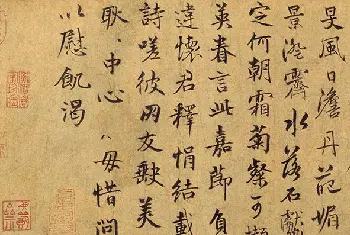 旻風日澹丹葩媚
景澄霽水落石獻
定何朝霜菊粲可擷
英眷言此嘉節負
違懷君釋悁結載
詩嗟彼朋友美
耿〻中心〻毋惜問
以慰飢渴